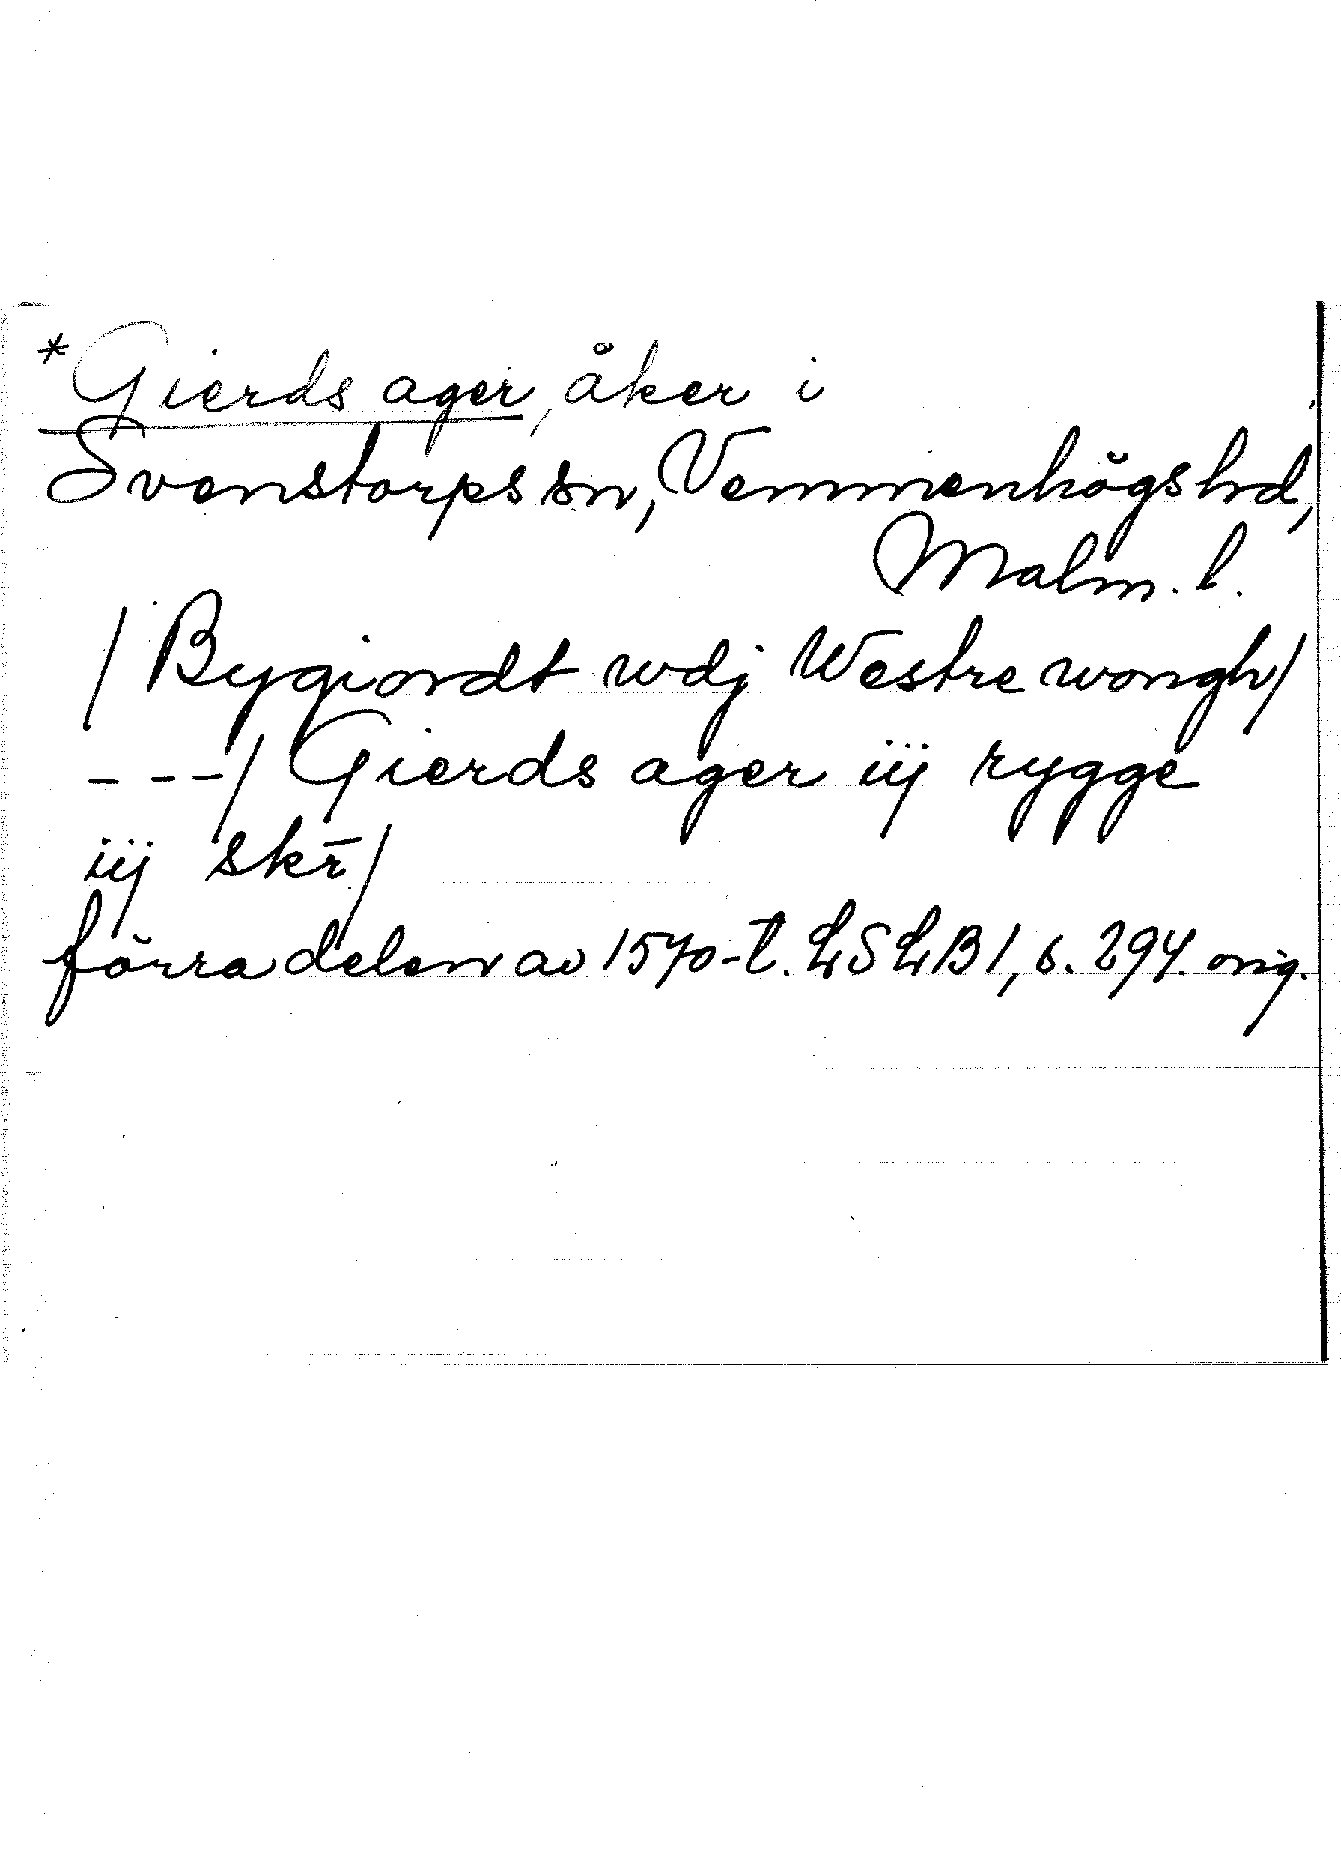 *Gierds ager, åker i
Svenstorps sn, Vemmenhögs hd,
Malm. l.
/Bygiordt wdj Westre wongh/
- - -/ Gierds ager iij rygge
iij skr̄/
förra delen av 1570-t. LSLB1, s. 294. orig.